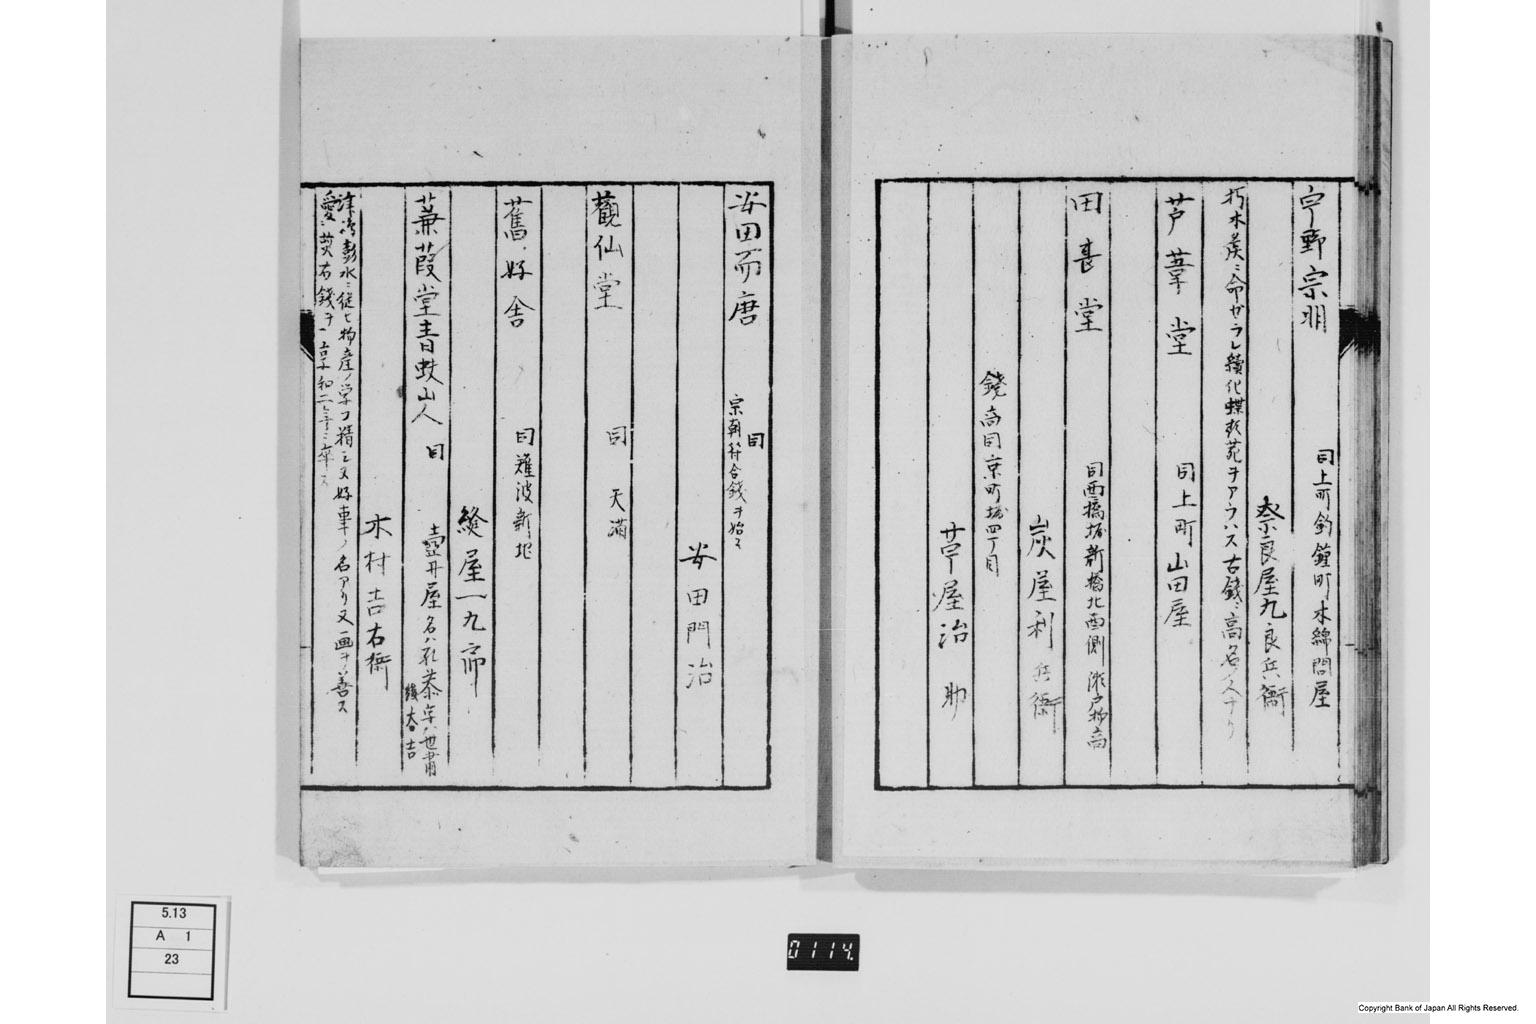 宇野宗明
同上町釣鐘町木綿問屋
奈良屋九良兵衞
朽木侯ニ命ゼラレ續化蝶類苑ヲアラハス古錢ニ高名ノ人ナリ
芦葦堂
同上町山田屋
田甚堂
同西橫堀新橋北西側瀬戸物商
炭屋利兵衞
錢商同京町堀四丁目
草屋治助
安田而唐
同
宗朝符合錢ヲ始ム
安田門治
觀仙堂
同 天滿
舊好舍
同難波新地
縫屋一九
蒹葭堂青蚨山人
同
壺井屋名ハ孔恭字ハ世肅
後太吉
木村吉右衛
津島彭水ニ従ヒ物産ノ学ヲ精シ又好事ノ名アリ又画ヲ善ス
愛ニ古錢ヲ享和二年ニ卒ス
5.13
A 1
23
0114.
Copyright Bank of Japan All Rights Reserved.